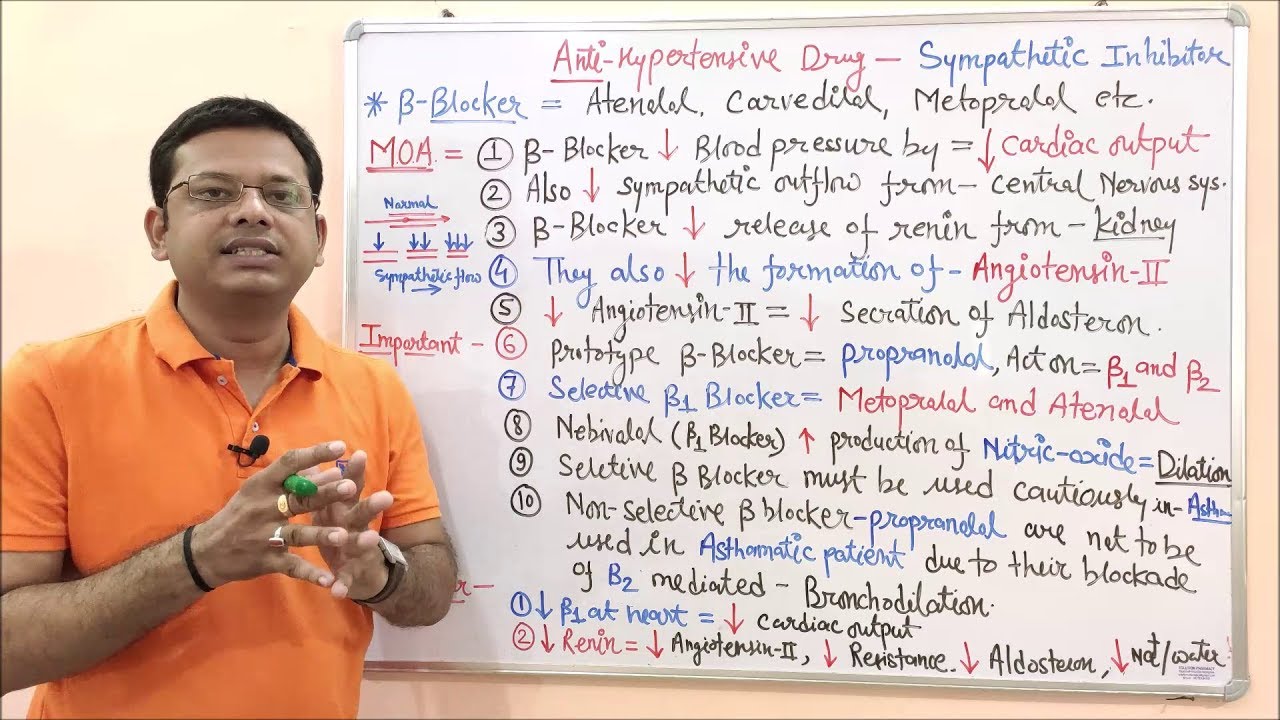 Anti-Hypertensive Drug - Sympathetic Inhibitor
* β-Blocker = Atenolol, Carvedilol, Metoprolol etc.
M.O.A. = ① β-Blocker ↓ Blood pressure by = ↓ cardiac output
② Also ↓ sympathetic outflow from - central Nervous sys.
Normal
③ β-Blocker ↓ release of renin from - kidney
Sympathetic flow
④ They also ↓ the formation of - Angiotensin-II
⑤ ↓ Angiotensin-II = ↓ Secration of Aldosteron.
Important - ⑥ Prototype β-Blocker = propranolol, Act on = β1 and β2
⑦ Selective β1 Blocker = Metoprolol and Atenolol
⑧ Nebivalol (β1 Blocker) ↑ production of Nitric-oxide = Dilation
⑨ Seletive β Blocker must be used cautiously in -
⑩ Non-selective β blocker - propranolol are not to be
used in Asthamatic patient due to their blockade
of β2 mediated - Bronchodilation.
① ↓ β1 at heart = ↓ cardiac output
② ↓ Renin = ↓ Angiotensin-II, ↓ Resistance. ↓ Aldosteron, ↓ Na+/water